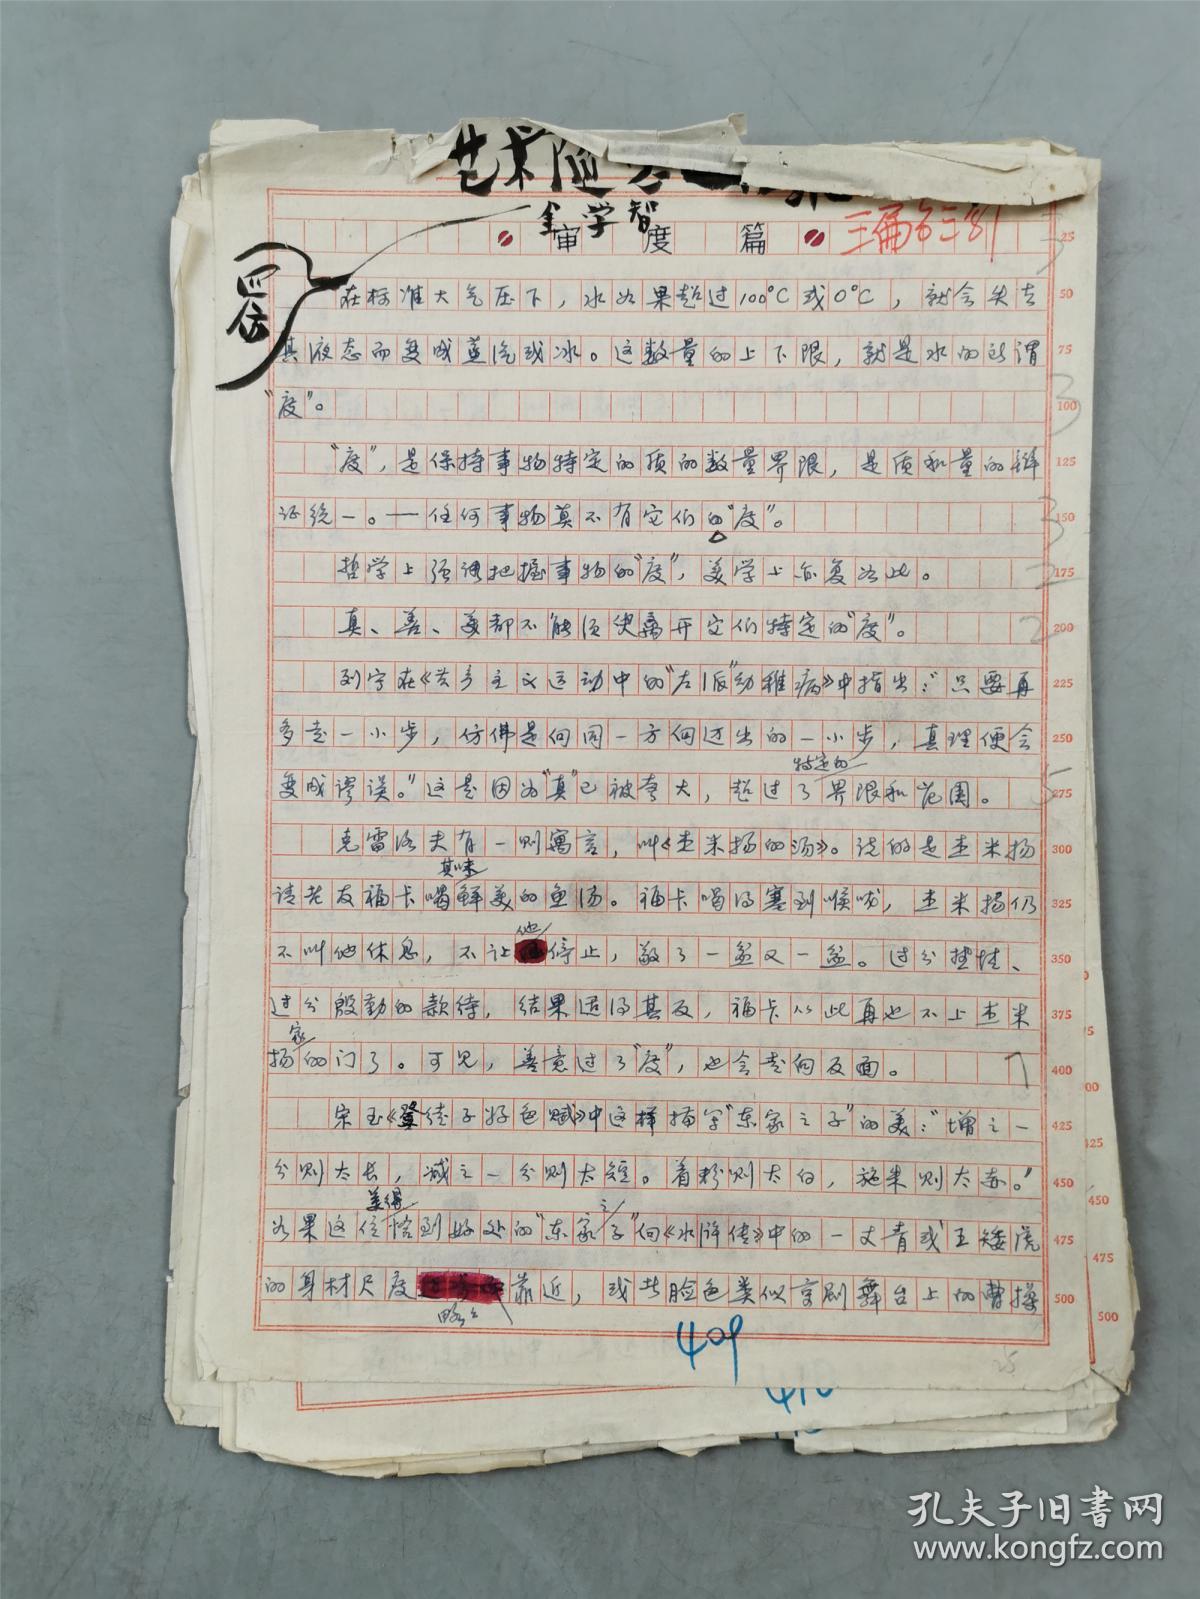 艺术随
金学智
审度篇
四仿
在标准大气压下，水如果超过100°C或0°C，就会失去
其液态而变成蒸汽或冰。这数量的上下限，就是水的所谓
“度”。
“度”，是保持事物特定的质的数量界限，是质和量的辩
证统一。——任何事物莫不有它们的“度”。
哲学上强调把握事物的“度”，美学上亦复如此。
真、善、美都不能须臾离开它们特定的“度”。
列宁在《共产主义运动中的“左派”幼稚病》中指出：“只要再
多走一小步，仿佛是向同一方向迈出的一小步，真理便会
变成谬误。”这是因为“真”已被夸大，超过了特定的界限和范围。
克雷洛夫有一则寓言，叫《杰米扬的汤》。说的是杰米扬
请老友福卡喝其味鲜美的鱼汤。福卡喝得塞到喉咙，杰米扬仍
不叫他休息，不让他停止，敬了一盆又一盆。过分热情、
过分殷勤的款待，结果适得其反，福卡从此再也不上杰米
扬家的门了。可见，善意过了“度”，也会走向反面。
宋玉《登徒子好色赋》中这样描写“东家之子”的美：“增之一
分则太长，减之一分则太短。着粉则太白，施朱则太赤。”
如果这位美得恰到好处的“东家之子”向《水浒传》中的一丈青或王矮虎
的身材尺度略々靠近，或者脸色类似京剧舞台上的曹操
409
25
50
75
100
125
150
175
200
225
250
275
300
325
350
375
400
425
450
475
500
孔夫子旧书网
www.kongfz.com